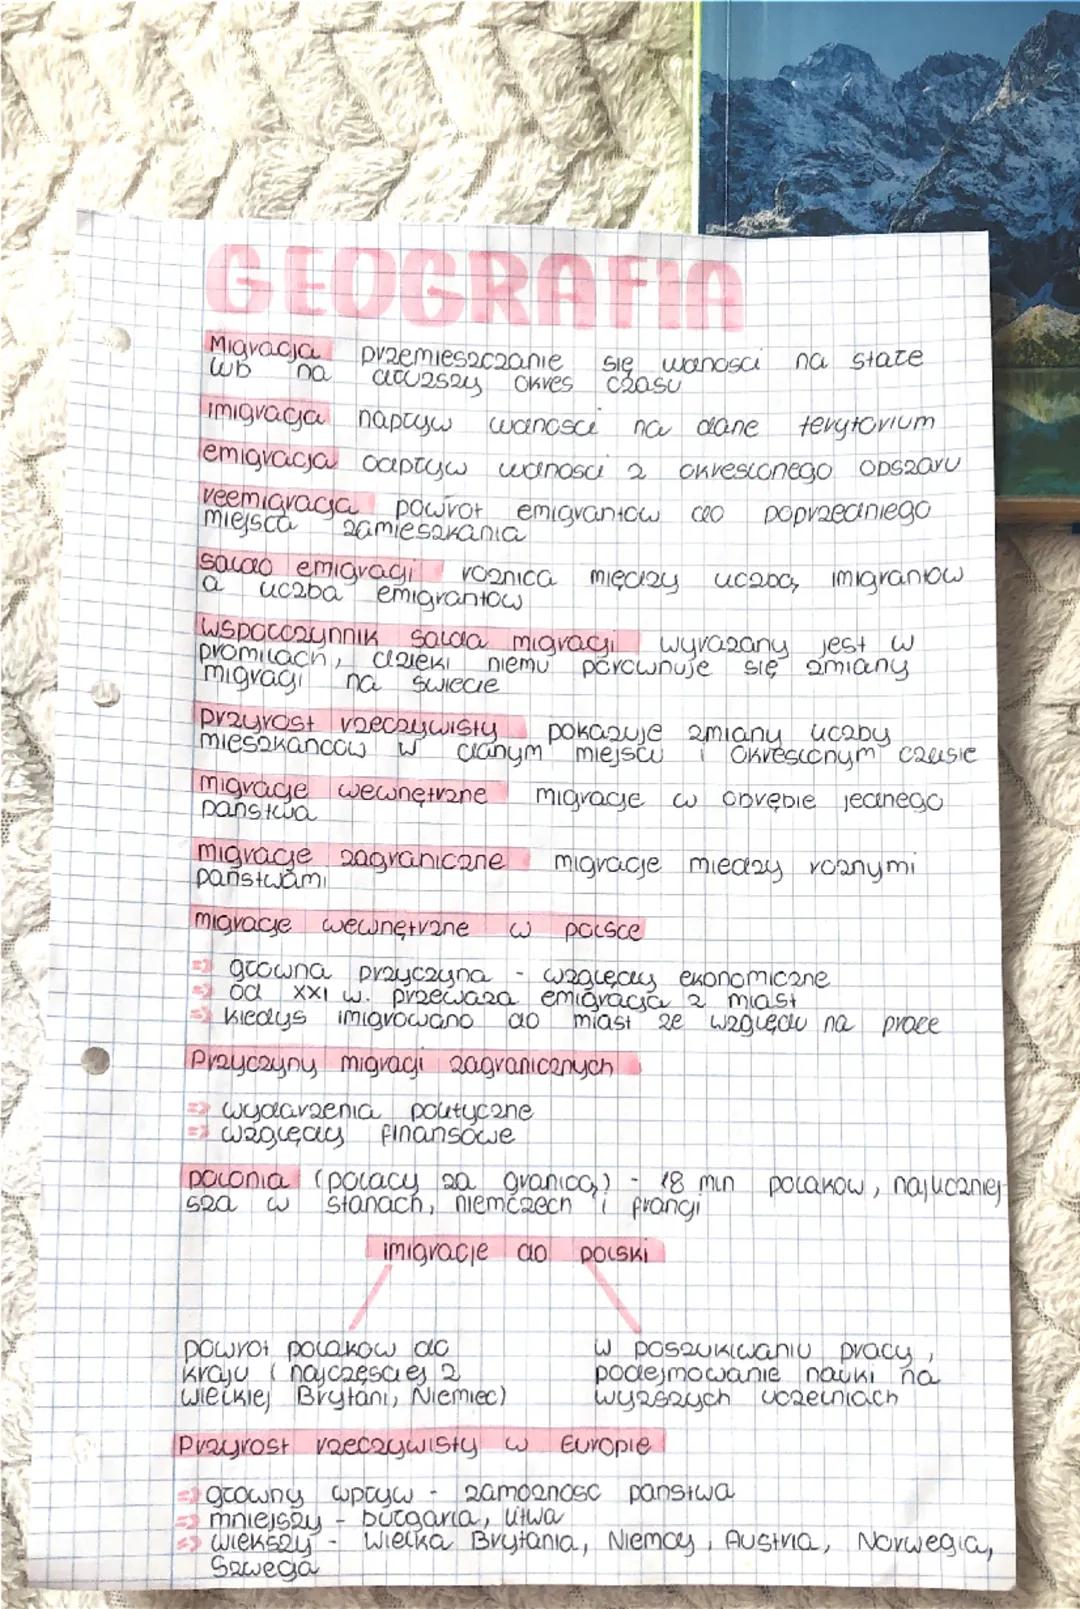 GEOGRAFIA
Migracja przemieszczanie się ludności na stałe
lub na dłuższy okres czasu
imigracja napływ ludności na dane terytorium
emigracja odpływ ludności z określonego obszaru
reemigracja powrót emigrantów do poprzedniego
miejsca zamieszkania
saldo emigragi różnica między liczbą imigrantów
a liczba emigrantów
współczynnik salda migragi wyrażany jest w
promilach, dzięki niemu porównuje się zmiany
migragi na świecie
przyrost rzeczywisty pokazuje zmiany liczby
mieszkańców w danym miejscu i określonym czasie
migracje wewnętrzne migracje w obrębie jednego
państwa
migracje zagraniczne migracje miedzy roznymi
państwami
migracje wewnętrzne w polsce
⇒ główna przyczyna - względy ekonomiczne
⇒ od XXI w. przeważa emigracja z miast
⇒ kiedyś imigrowano do miast ze względu na prace
Przyczyny migragi zagranicznych
⇒ wydarzenia polityczne
⇒ względy finansowe
polonia (polacy za granicą) - 18 mln polaków, najliczniej-
sza w stanach, niemczech i frangi
imigracje do polski
powrót polaków do
kraju (najczęściej z
wielkiej Brytani, Niemiec)
w poszukiwaniu pracy,
podejmowanie nauki na
wyższych uczelniach
Przyrost rzeczywisty w Europie
⇒ główny wpływ - zamożność państwa
⇒ mniejszy - bułgaria, litwa
⇒ większy - Wielka Brytania, Niemcy, Austria, Norwegia,
Szwega